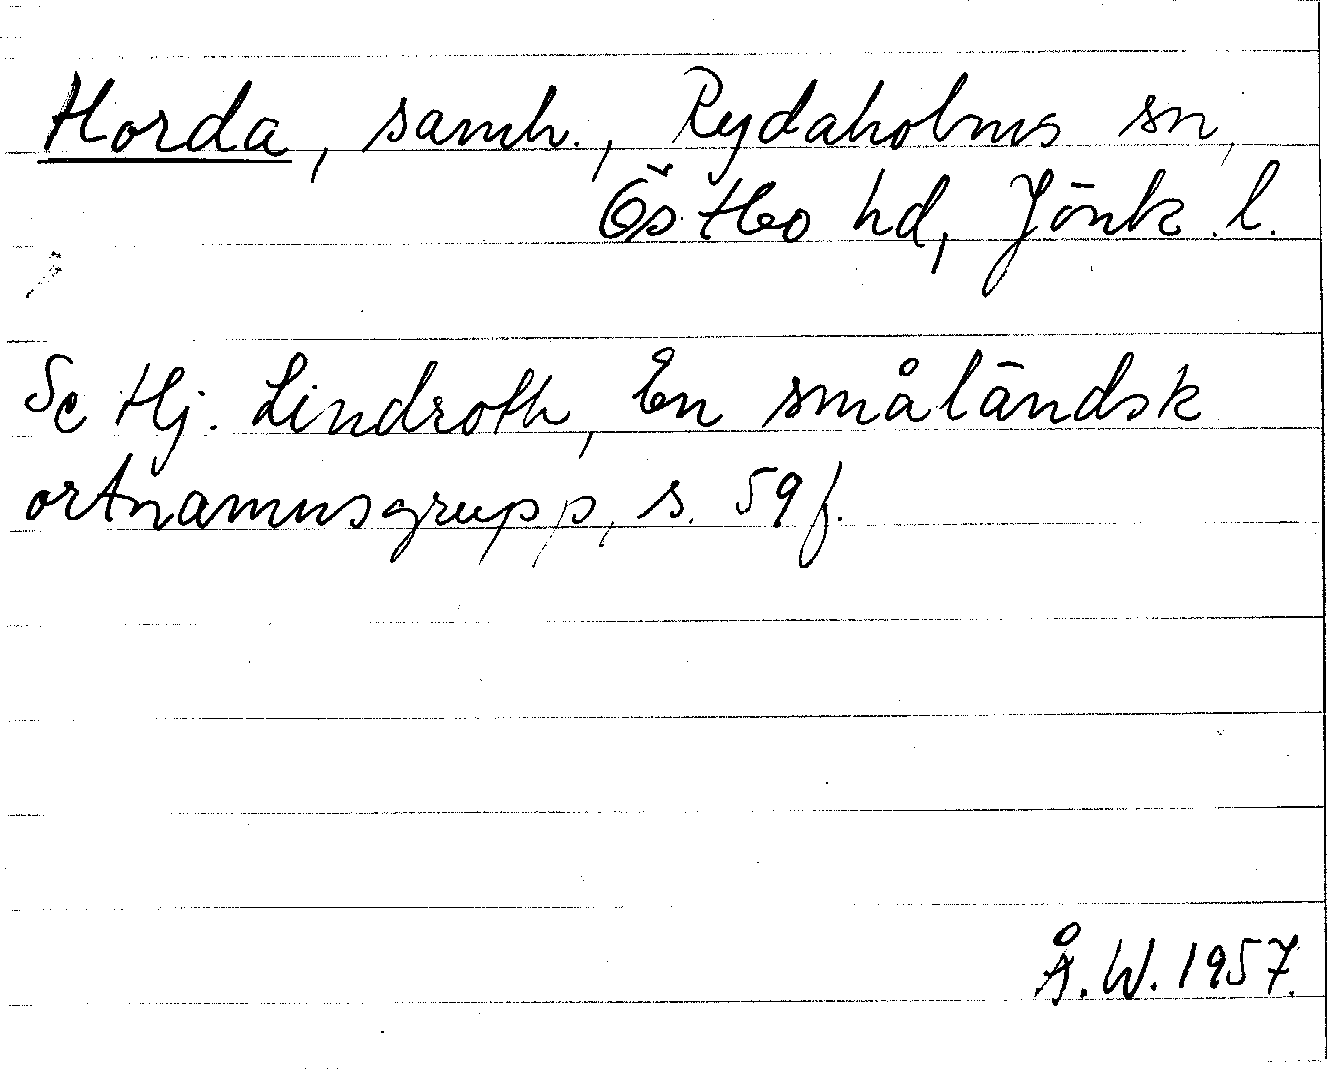 Horda, samh., Rydaholms sn,
Östbo hd, Jönk. l.
Se Hj. Lindroth, En småländsk
ortnamnsgrupp, s. 59 f.
Å. W. 1957.